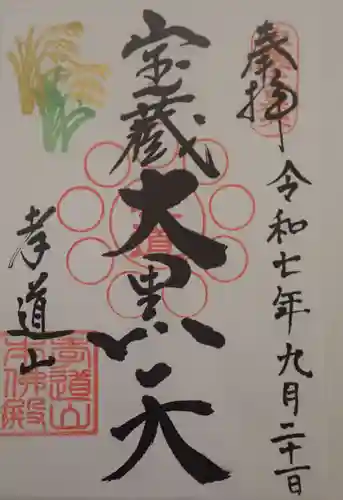 奉拝
令和七年九月二十一日
宝蔵
大黒天
孝道山
孝道山
本佛殿
道